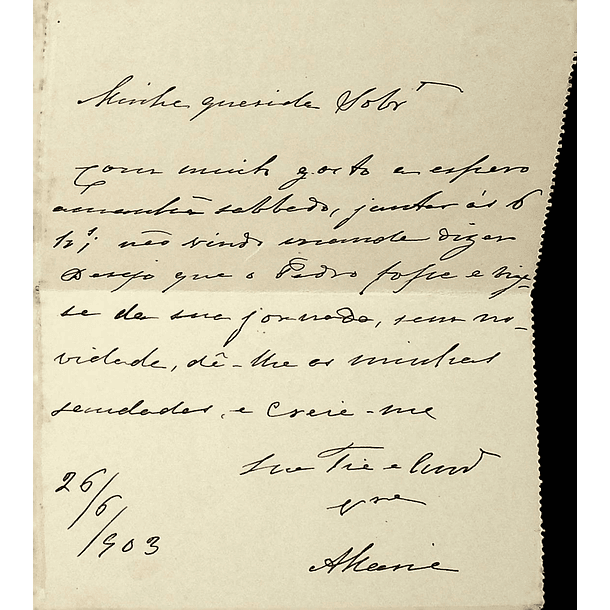 Minha querida Sobrª
Com muito gosto a espero
amanhã sabbado, jantar ás 6
h.s; não vindo mande dizer
Desejo que o Pedro fosse e vies-
se da sua jornada, sem no-
vidade, dê-lhe as minhas
saudades, e creie-me
Sua Tia e
gra
Maria
26/6/903